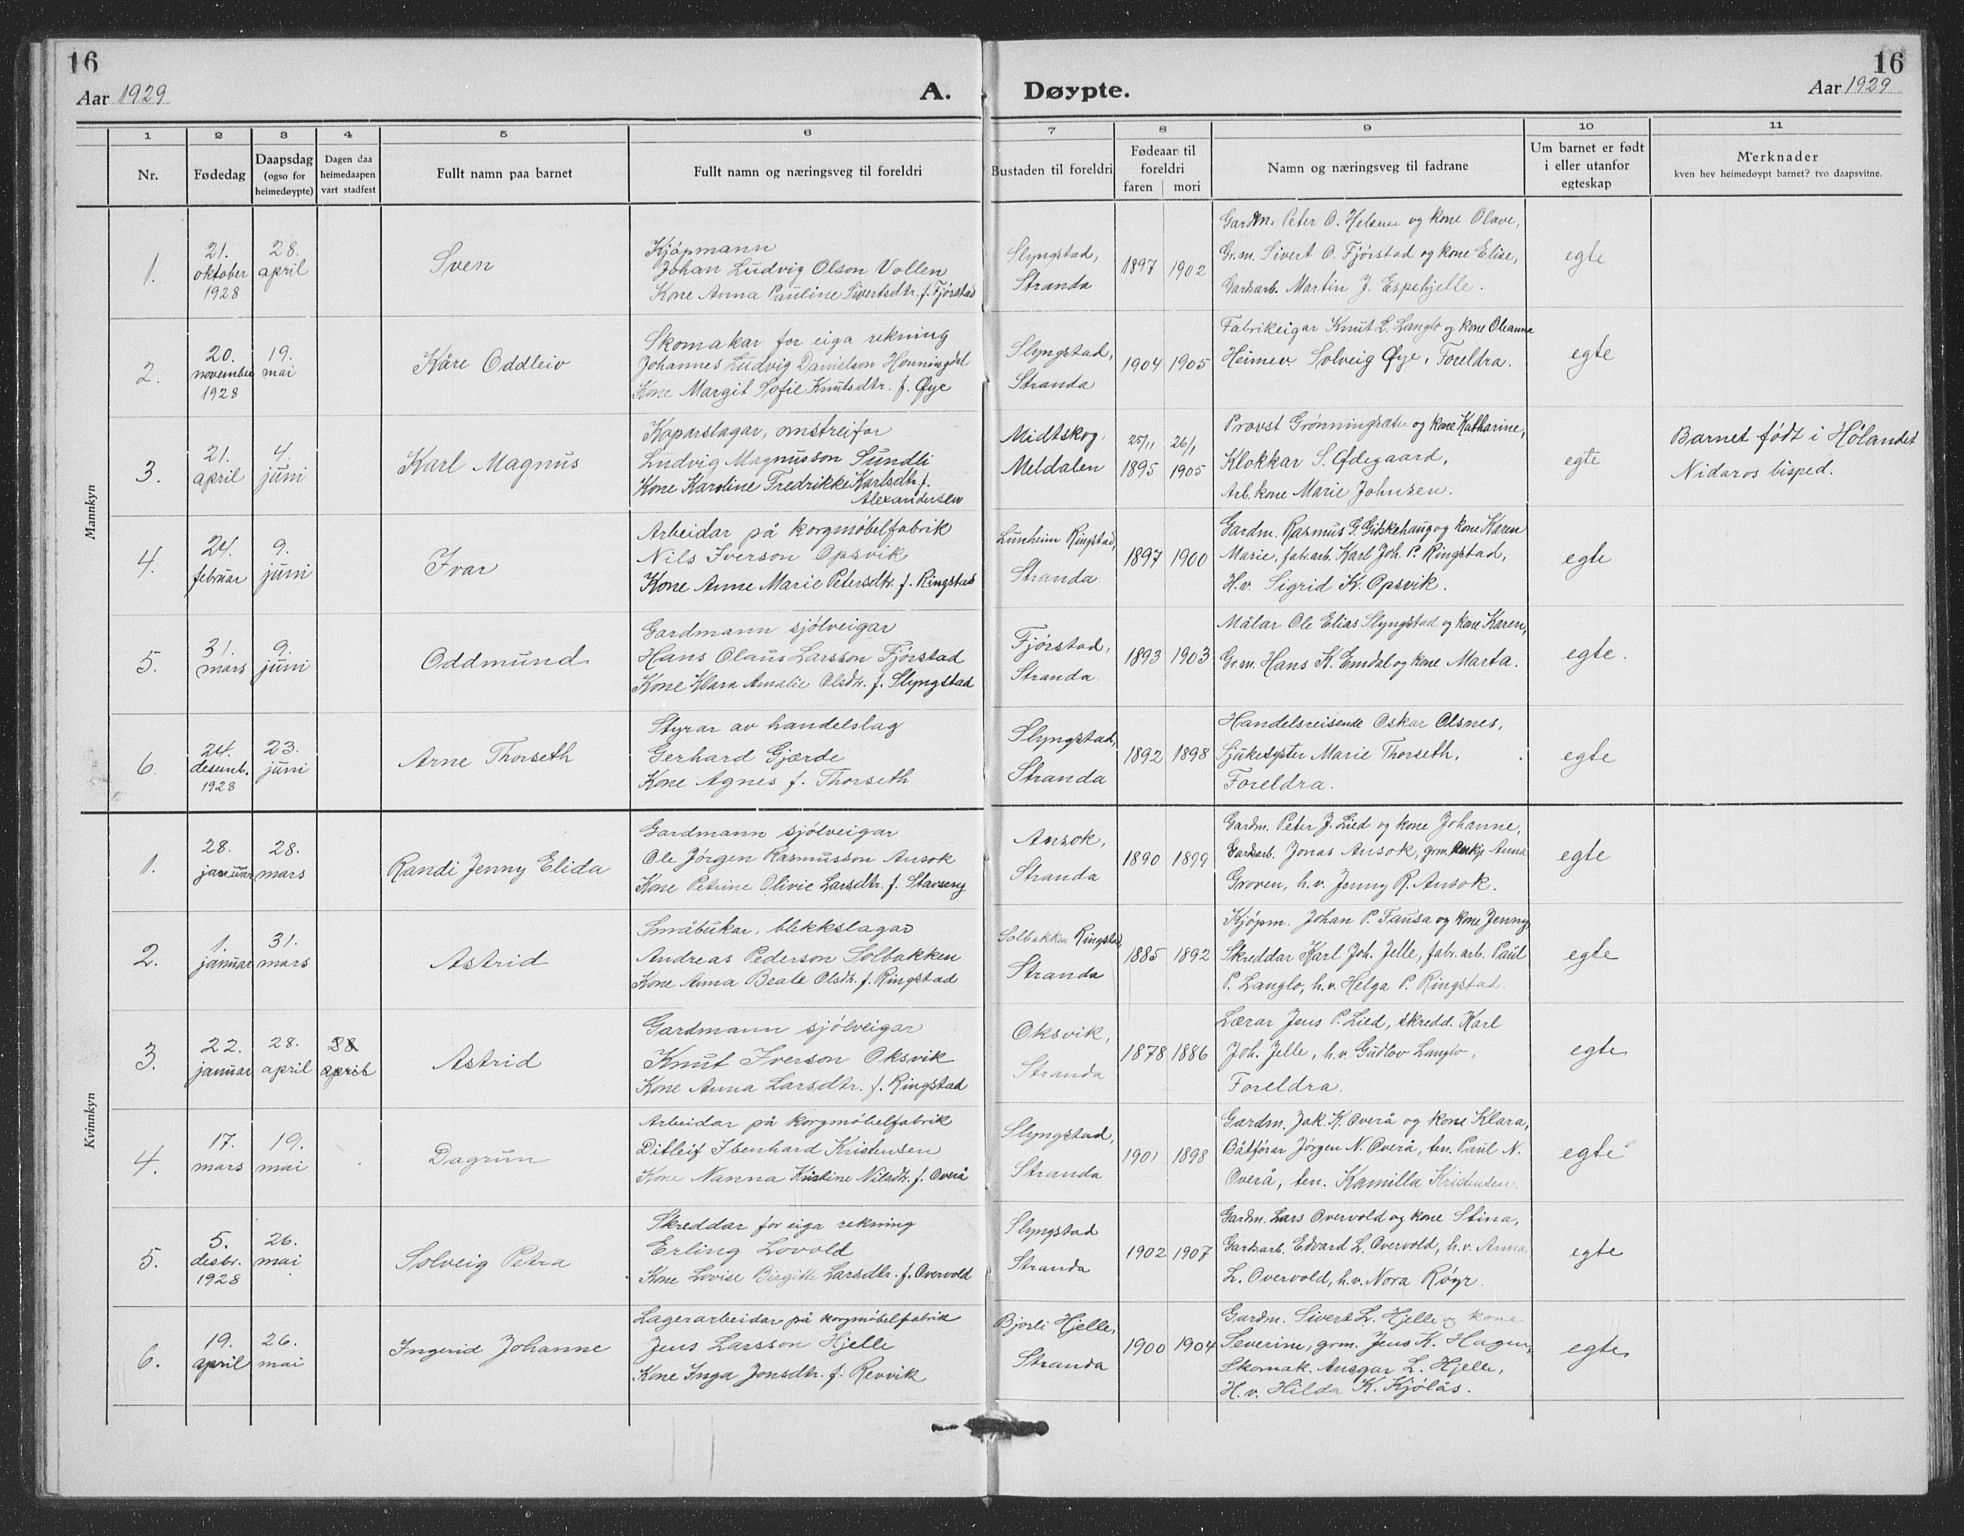 16
Aar 1929
A. Døypte.
16
Aar 1929
1 2 3 4 5 6 7 8 9 10 11
Nr.
Fødedag
Daapsdag
(ogso for
heimedøypte)
Dagen daa
heimedaapen
vart stadfest
Fullt namn paa barnet
Fullt namn og næringsveg til foreldri
Bustaden til foreldri
Fødeaar til
foreldri
faren mori
Namn og næringsveg til fadrane
Um barnet er født
i eller utanfor
egteskap
Merknader
kven hev heimedøypt barnet? tvo daapsvitne.
Mannkyn
1.
21.
oktober
1928
28.
april
Sven
Kjøpmann
Johan Ludvig Olson Vollen
Kone Anna Pauline Sivertsdtr. f. Fjørstad
Slyngstad,
Stranda
1897 1902
Gardm. Peter O. Helsem og kone Olave,
Gr.m. Sivert O. Fjørstad og kone Elise,
Gardsarb. Martin J. Espehjelle.
egte
2.
20.
november
1928
19.
mai
Kåre Oddleiv
Skomakar for eiga rekning
Johannes Ludvig Danielson Honningdal
Kone Margit Sofie Knutsdtr. f. Øye
Slyngstad,
Stranda
1904 1905
Fabrikeigar Knut L. Langlo og kone Oleanna
Heimev. Solveig Øye, Foreldra.
egte
3.
21.
april
4.
juni
Karl Magnus
Koparslagar, omstreifar
Ludvig Magnusson Sundli
Kone Karoline Fredrikke Karlsdtr. f.
Alexandersen
Midtskog,
Meldalen
25/11 1895
26/1 1905
Provst Grønningsæter og kone Katharine,
Klokkar S. Ødegaard,
Arb. kone Marie Johnsen.
egte
Barnet født i Hølandet
Nidaros bisped.
4.
24.
februar
9.
juni
Ivar
Arbeidar på korgmøbelfabrik
Nils Iverson Opsvik
Kone Anne Marie Petersdtr. f. Ringstad
Lunheim Ringstad,
Stranda
1897 1900
Gardm. Rasmus G. Gitskehaug og kone Karen
Marie, fab.arb. Karl Joh. P. Ringstad,
H.v. Sigrid K. Opsvik.
egte
5.
31.
mars
9.
juni
Oddmund
Gardmann sjølveigar
Hans Olaus Larsson Fjørstad
Kone Klara Amalie Olsdtr. f. Slyngstad
Fjørstad,
Stranda.
1893 1903
Målar Ole Elias Slyngstad og kone Karen,
Gr.m. Hans K. Emdal og kone Marta.
egte.
6.
24.
desemb.
1928
23.
juni
Arne Thorseth
Styrar av handelslag
Gerhard Gjærde
Kone Agnes f. Thorseth
Slyngstad,
Stranda
1892 1898
Handelsreisende Oskar Olsnes,
Sjukesyster Marie Thorseth,
Foreldra.
egte
Kvinnkyn
1.
28.
januar
28.
mars
Randi Jenny Elida
Gardmann sjølveigar
Ole Jørgen Rasmusson Ansok
Kone Petrine Olivie Larsdtr. f. Stavseng
Ansok,
Stranda
1890 1899
Gardm. Peter J. Lied og kone Johanne,
Gardsarb. Jonas Ansok, grm. Anna
Groven, h.v. Jenny R. Ansok.
egte
2.
1.
januar
31.
mars
Astrid
Småbrukar, blekkslagar
Andreas Pederson Solbakken
Kone Anna Beate Olsdtr. f. Ringstad
Solbakken Ringstad,
Stranda
1885 1892
Kjøpm. Johan P. Fausa og kone Jenny,
Skreddar Karl Joh. Jelle, fabr. arb. Paul
P. Langlo, h.v. Helga P. Ringstad
egte
3.
22.
januar
28.
april
28
april
Astrid
Gardmann sjølveigar
Knut Iverson Oksvik
Kone Anna Larsdtr. f. Ringstad
Oksvik,
Stranda
1878 1886
Lærar Jens P. Lied, skredd. Karl
Joh. Jelle, h.v. Gudlov Langlo,
Foreldra.
egte
4.
17.
mars
19.
mai
Dagrun
Arbeidar på korgmøbelfabrik
Ditleif Ibenhard Kristensen
Kone Nanna Kristine Nilsdtr. f. Overå
Slyngstad,
Stranda
1901 1898
Gardm. Jak. K. Overå og kone Klara,
Båtførar Jørgen N. Overå, ten. Paul N.
Overå, ten. Kamilla Kristensen.
egte
5.
5.
desbr.
1928
26.
mai
Solveig Petra
Skreddar for eiga rekning
Erling Lovold
Kone Lovise Birgitte Larsdtr. f. Overvold
Slyngstad
Stranda
1902 1907
Gardm. Lars Overvold og kone Stina,
Gardsarb. Edvard L. Overvold, h.v. Anna
L. Overvold, h.v. Nora Røyr.
egte
6.
19.
april
26.
mai
Ingerid Johanne
Lagerarbeidar på korgmøbelfabrik
Jens Larsson Hjelle
Kone Inga Jonsdtr. f. Revvik
Bjorli Hjelle,
Stranda
1900 1904
Gardm. Sivert L. Hjelle og kone
Severine, grm. Jens K. Hagen,
Skomak. Ansgar L. Hjelle,
H.v. Hilda K. Kjølås.
egte